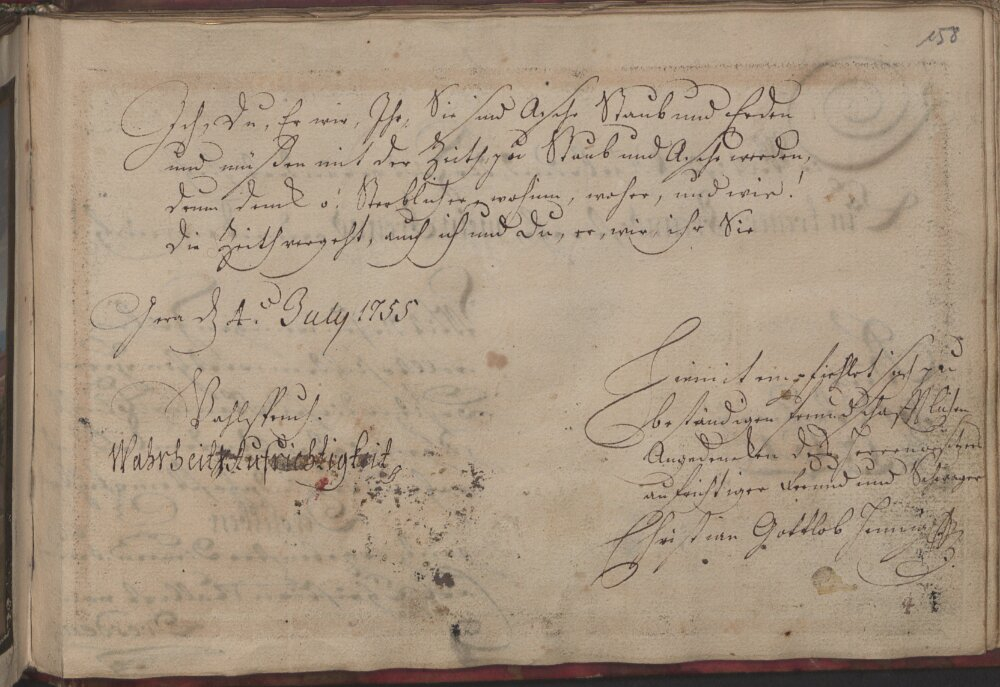 158
Ich, Du, Er wir, Ihr, Sie sind Asche Staub und Erden
und müßen mit der Zeith zu Staub und Asche werden,
drum denck o! Sterblicher, wohin, woher, und wie!
die Zeith vergeht, auch ich und Du, er, wir, ihr Sie
Gera d 4. July 1755
Wahlspruch.
Wahrheit u. Aufrichtigkeit
Hiemit empfiehlet sich zu
beständigen freundschafftlichen
Angedencken des Herren
aufrichtiger Freund und Schwager
Christian Gottlob